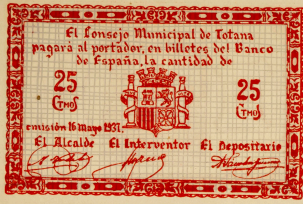 El Consejo Municipal de Totana
pagará al portador, en billetes del Banco
de España, la cantidad de
25 25
Ctmos Ctmos
emisión 16 mayo 1937.
El Alcalde El Interventor El Depositario